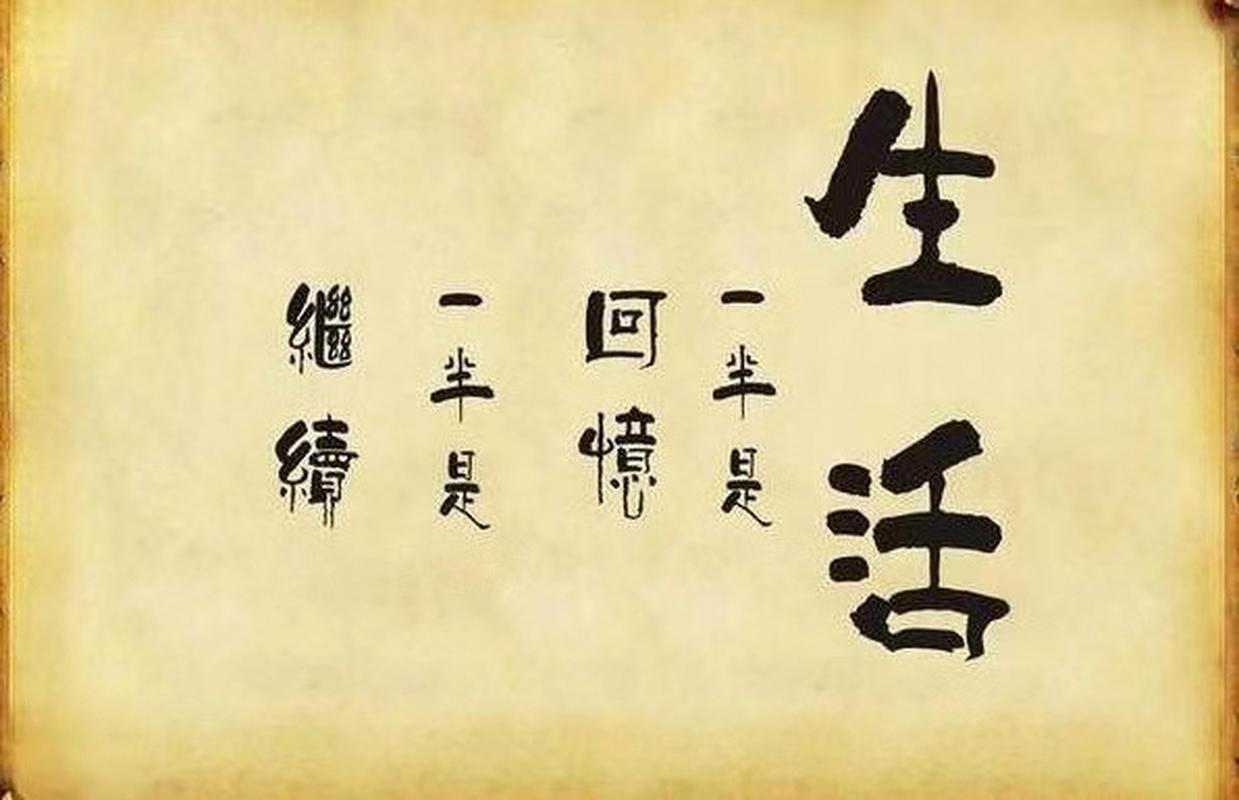 生活
一半是
回憶
一半是
繼續